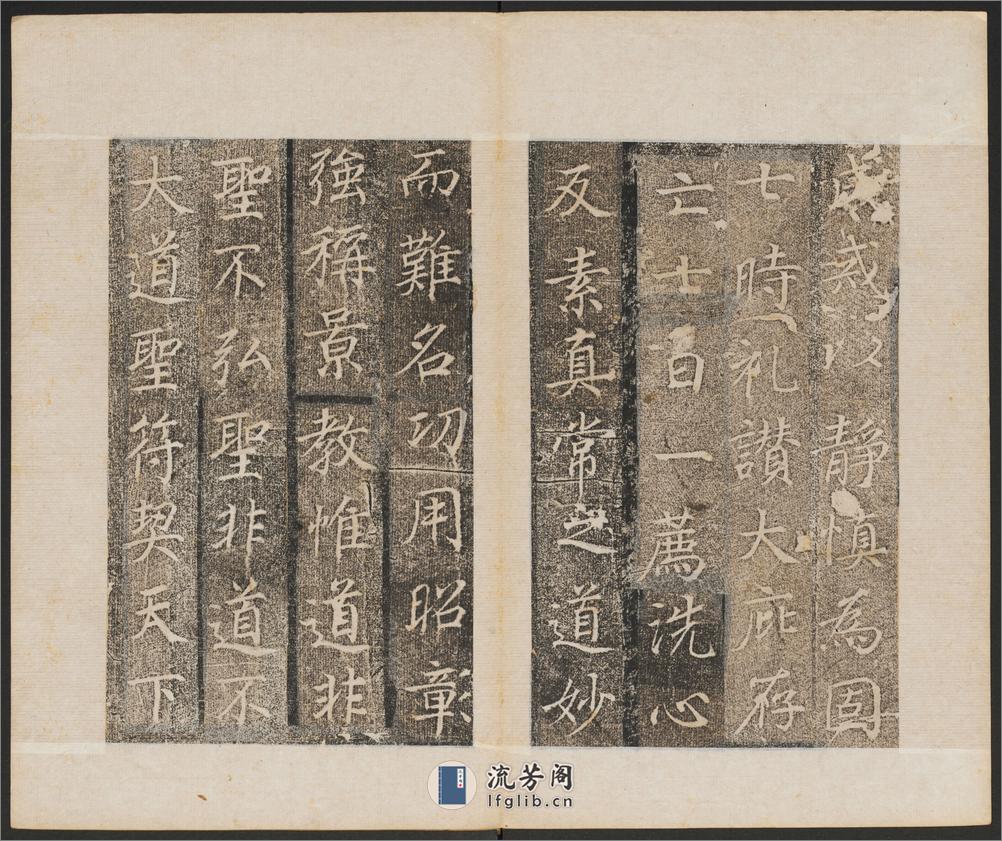 虛或以靜慎為固
七時礼讃大庇存
亡七日一薦洗心
反素真常之道妙
而難名功用昭彰
強稱景教惟道非
聖不弘聖非道不
大道聖符契天下
流芳阁
lfglib.cn